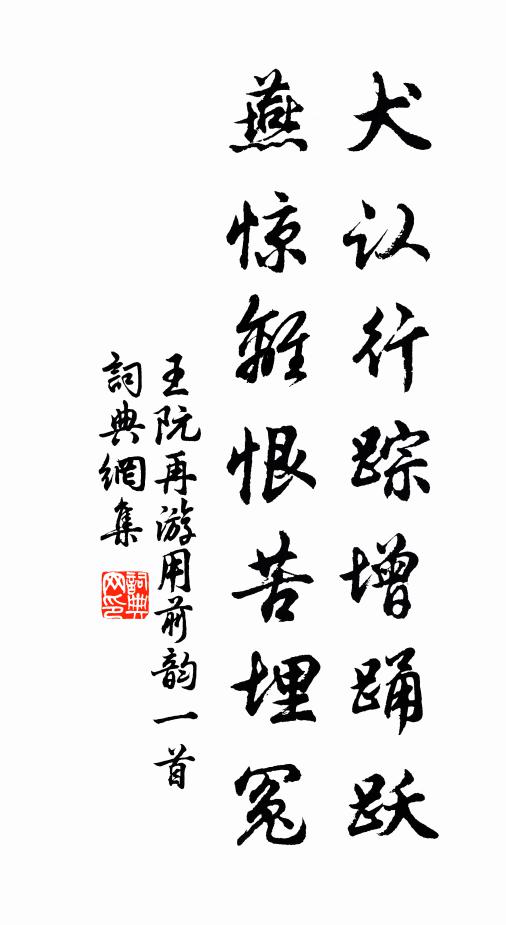 犬认行踪增踊跃
燕惊离恨苦埋冤
王阮再游用前韵一首
詞典網集
詞典网印